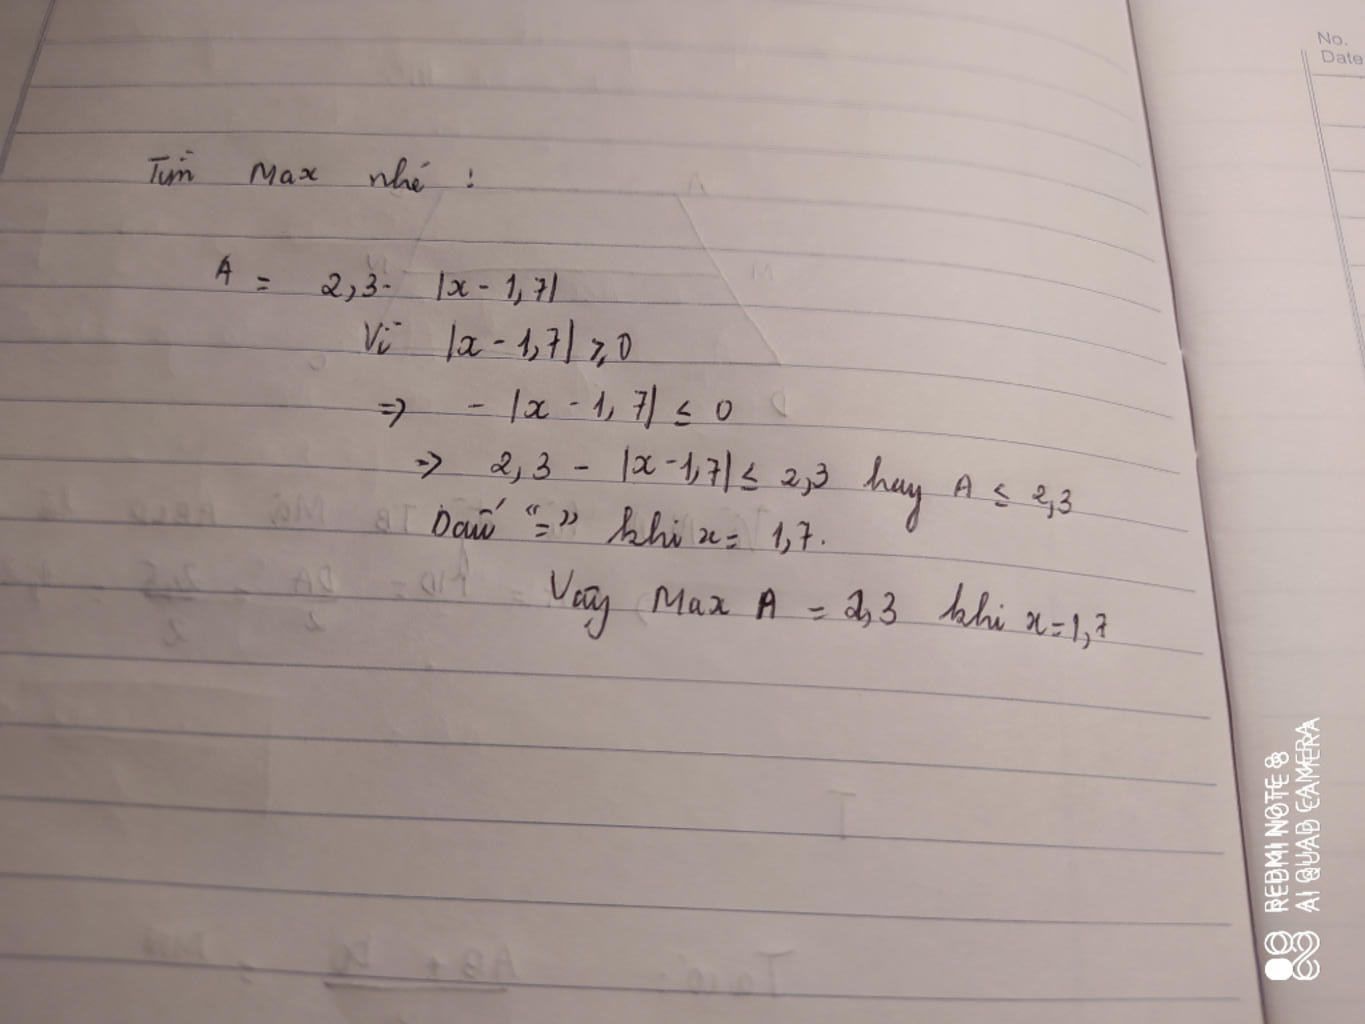 No.
Date
Tìm Max nhé :
A = 2,3 - |x - 1,7|
Vì |x - 1,7| ≥ 0
⇒ - |x - 1,7| ≤ 0
⇒ 2,3 - |x - 1,7| ≤ 2,3 hay A ≤ 2,3
Dấu "=" khi x = 1,7.
Vậy Max A = 2,3 khi x = 1,7
REDMI NOTE 8
AI QUAD CAMERA